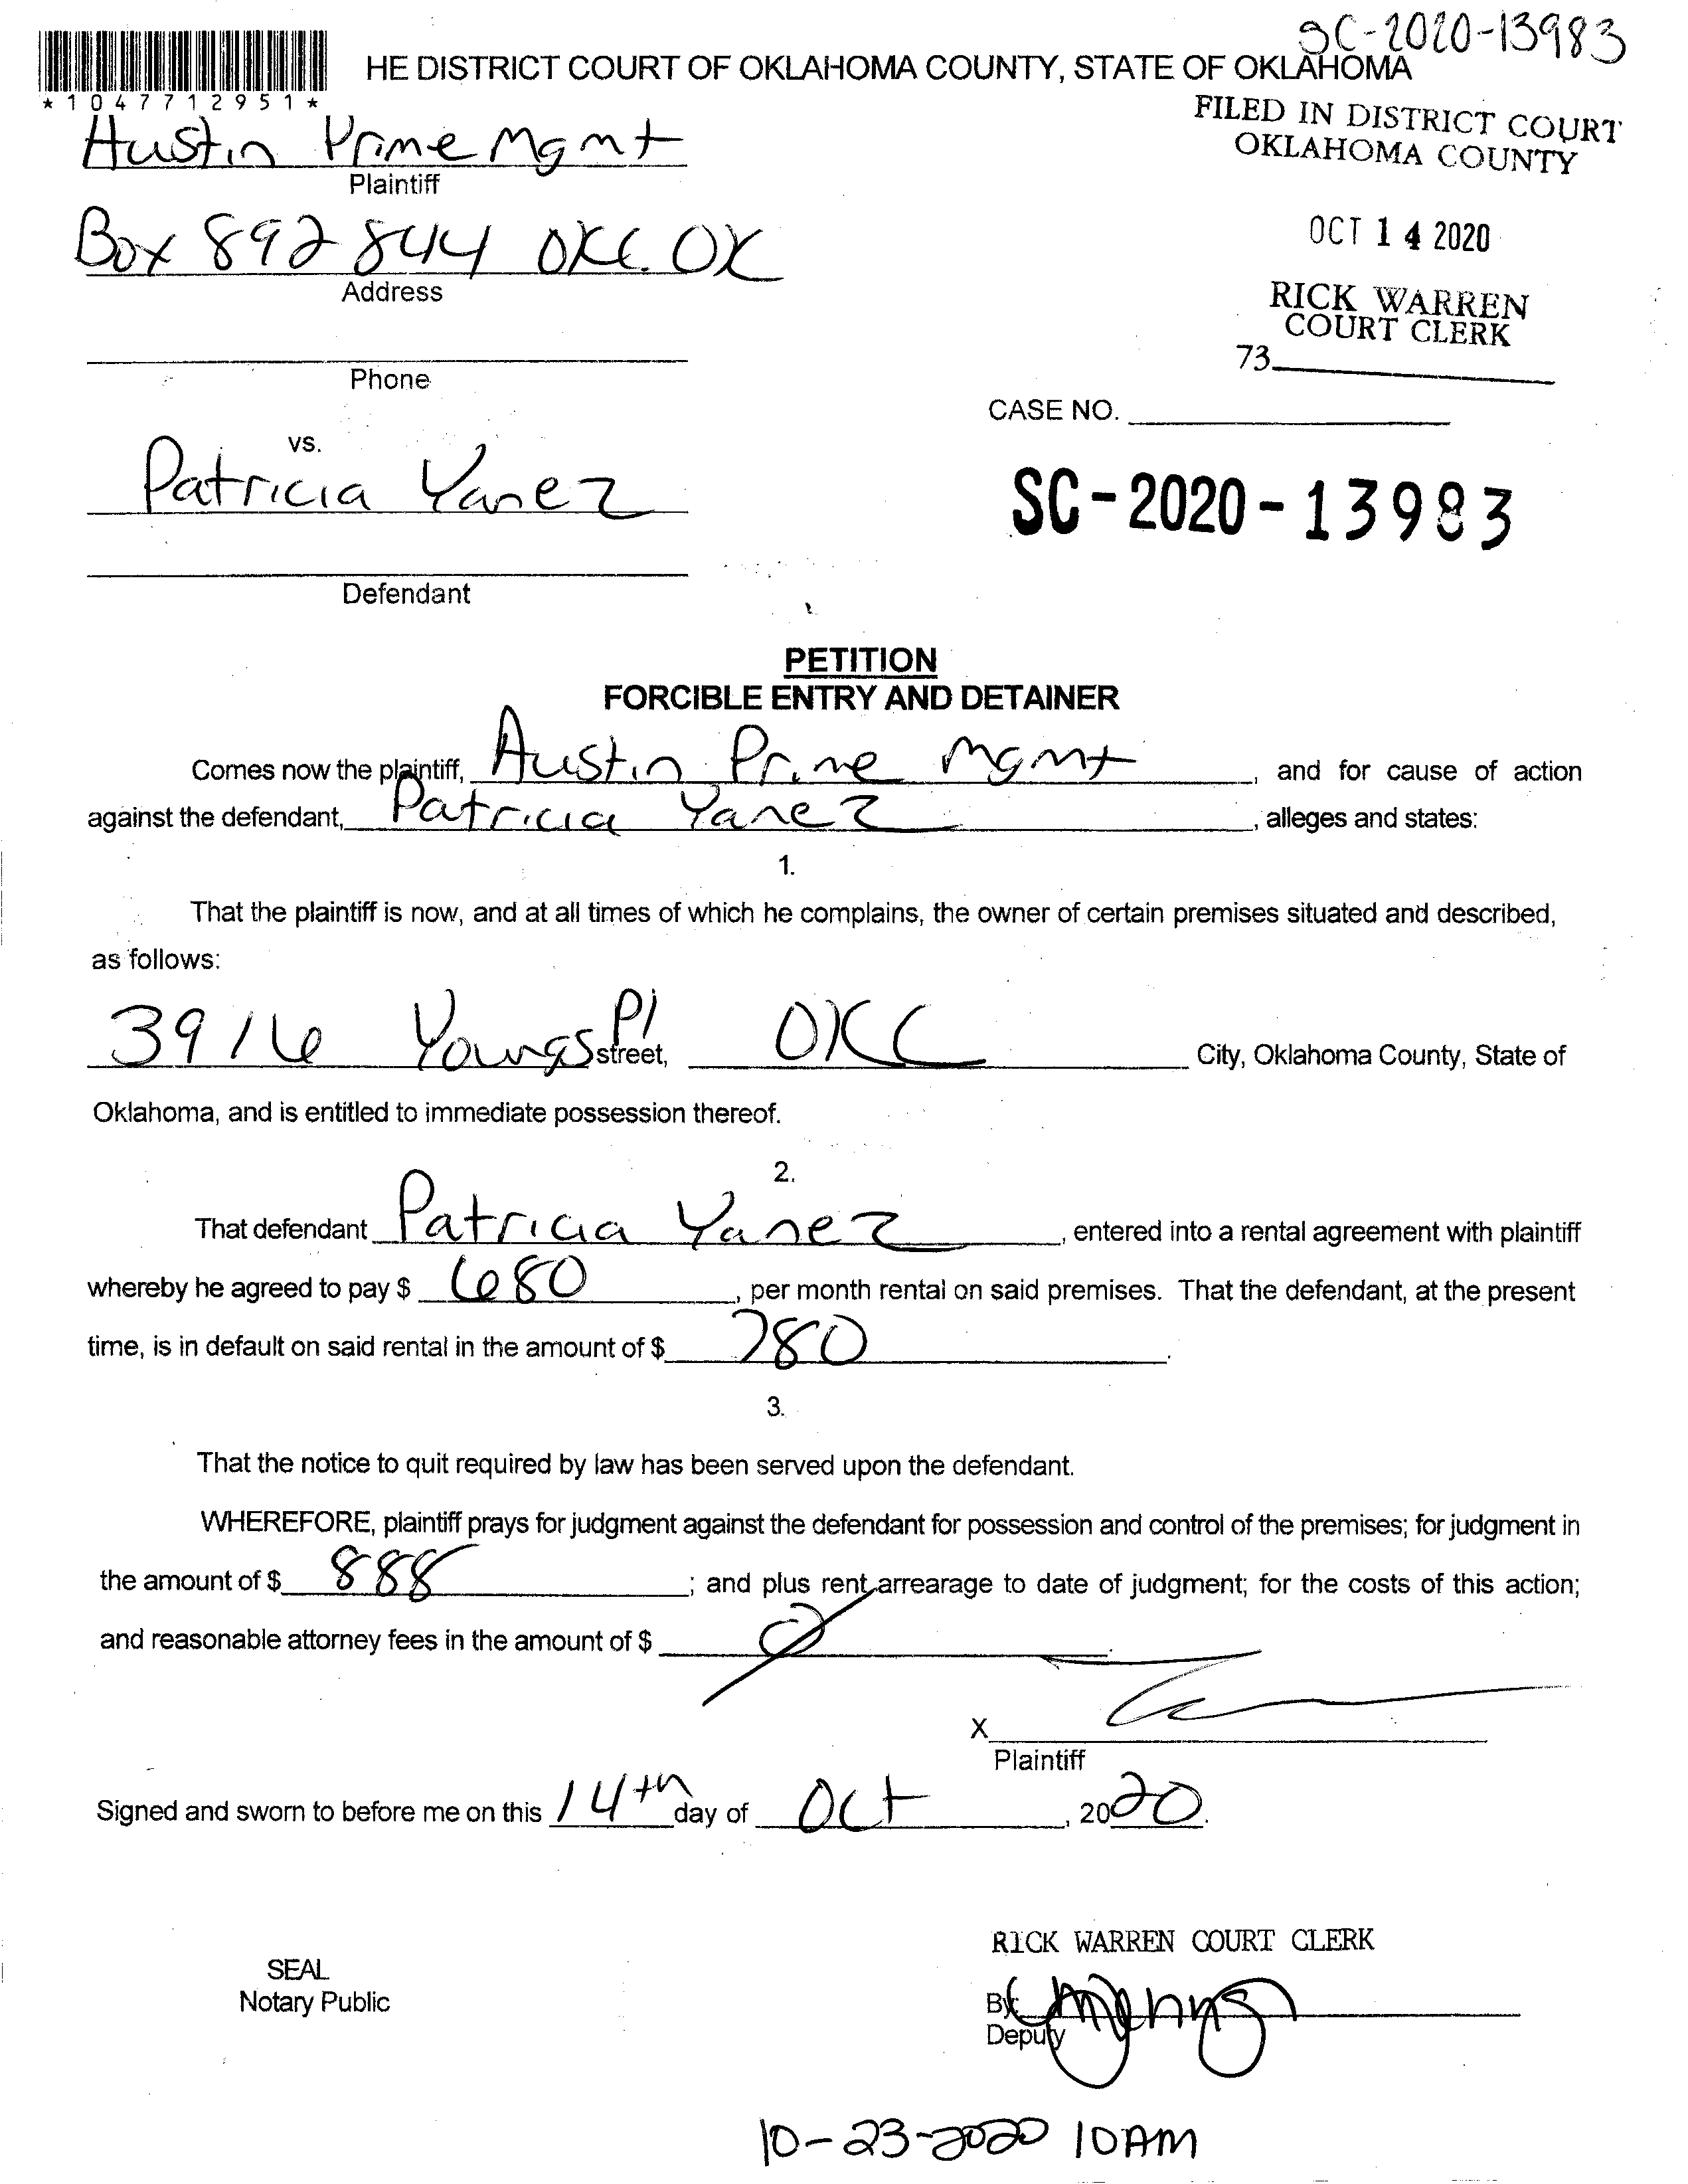 SC-2020-13983
HE DISTRICT COURT OF OKLAHOMA COUNTY, STATE OF OKLAHOMA
*1047712951*
FILED IN DISTRICT COURT
OKLAHOMA COUNTY
Austin Prime Mgmt
Plaintiff
OCT 14 2020
Box 892844 OKC. OK
Address
RICK WARREN
COURT CLERK
73
Phone
CASE NO.
vs.
Patricia Yanez
SC-2020-13983
Defendant
PETITION
FORCIBLE ENTRY AND DETAINER
Comes now the plaintiff, Austin Prime Mgmt, and for cause of action
against the defendant, Patricia Yanez, alleges and states:
1.
That the plaintiff is now, and at all times of which he complains, the owner of certain premises situated and described,
as follows:
3916 Youngs Pl street, OKC City, Oklahoma County, State of
Oklahoma, and is entitled to immediate possession thereof.
2.
That defendant Patricia Yanez, entered into a rental agreement with plaintiff
whereby he agreed to pay $ 680, per month rental on said premises. That the defendant, at the present
time, is in default on said rental in the amount of $ 780.
3.
That the notice to quit required by law has been served upon the defendant.
WHEREFORE, plaintiff prays for judgment against the defendant for possession and control of the premises; for judgment in
the amount of $ 888; and plus rent arrearage to date of judgment; for the costs of this action;
and reasonable attorney fees in the amount of $ 0.
X
Plaintiff
Signed and sworn to before me on this 14th day of Oct, 2020.
RICK WARREN COURT CLERK
SEAL
Notary Public
By:
Deputy
10-23-2020 10AM